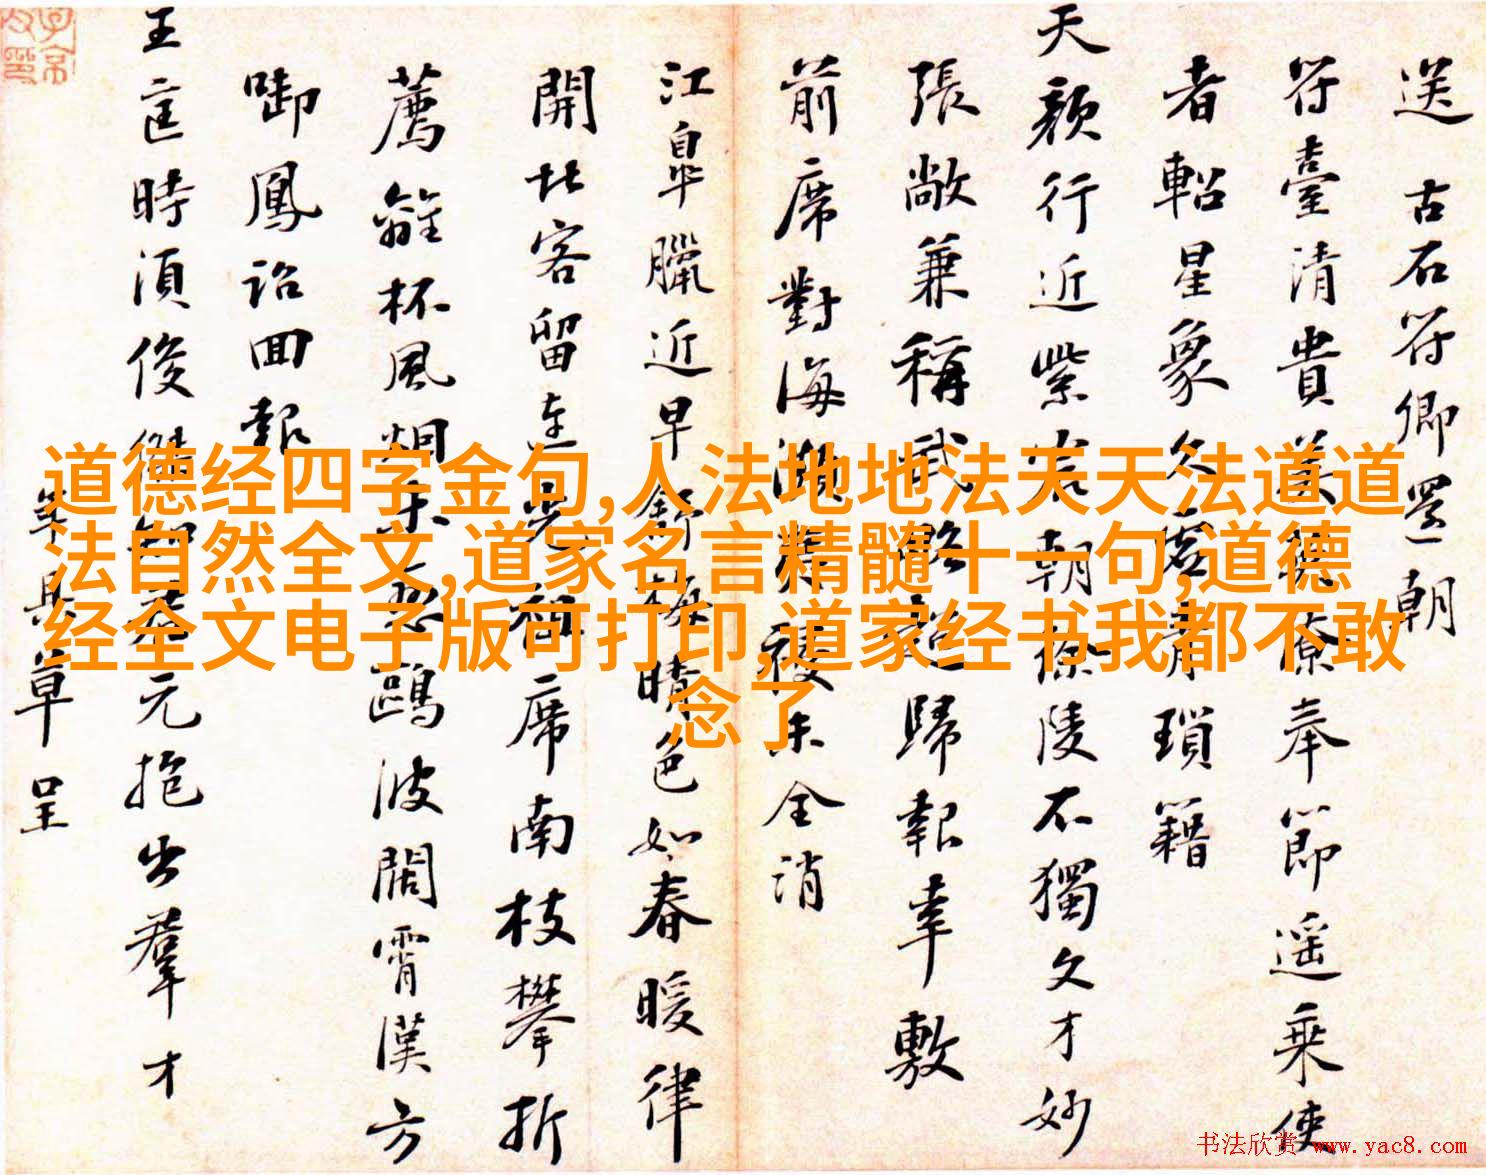 送古石符卿還朝
符臺清貴美
奉節遥乘使
者軺星象久
青瑣籍
天顔行近紫宸朝
陵不獨文才妙
張敞兼稱武略
歸報幸敷
前席對海瀕
全消
江皐臘近早舒梅晴色如春暖律
開北客留連
席南枝攀折
薦
杯風烟
鷗波闊霄漢方
啣鳳詔回報
王匡時須俊傑知君元抱出羣才
草呈
道德经四字金句,人法地地法天天法道道
法自然全文,道家名言精髓十一句,道德
经全文电子版可打印,道家经书我都不敢
念了
书法欣赏 www.yac8.com